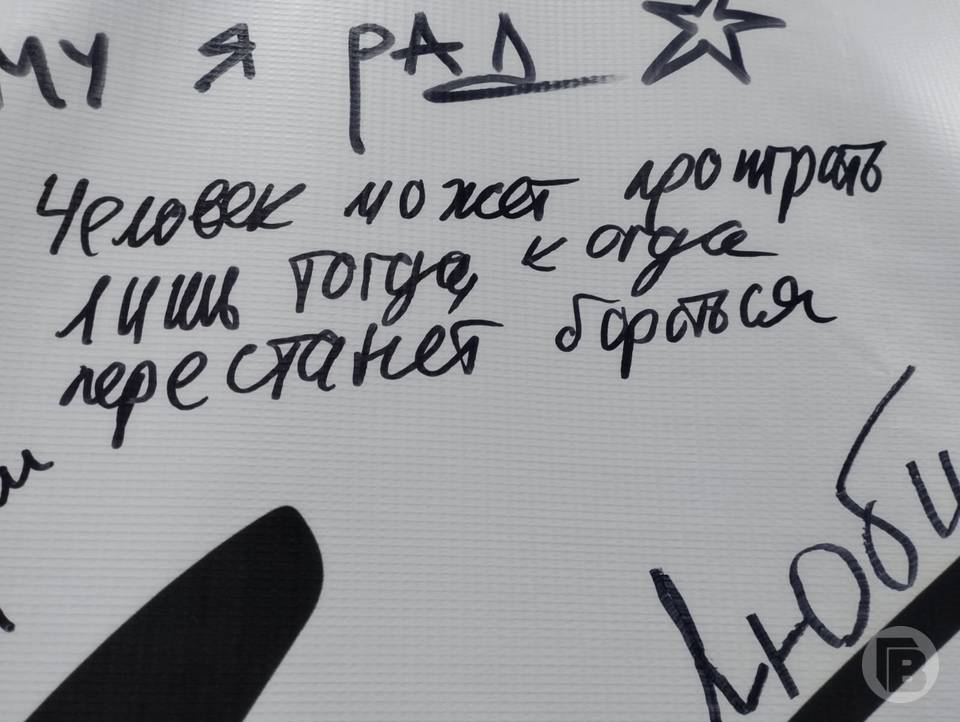 му я рад
Человек может проиграть
лишь тогда, когда
перестанет бороться
Люби